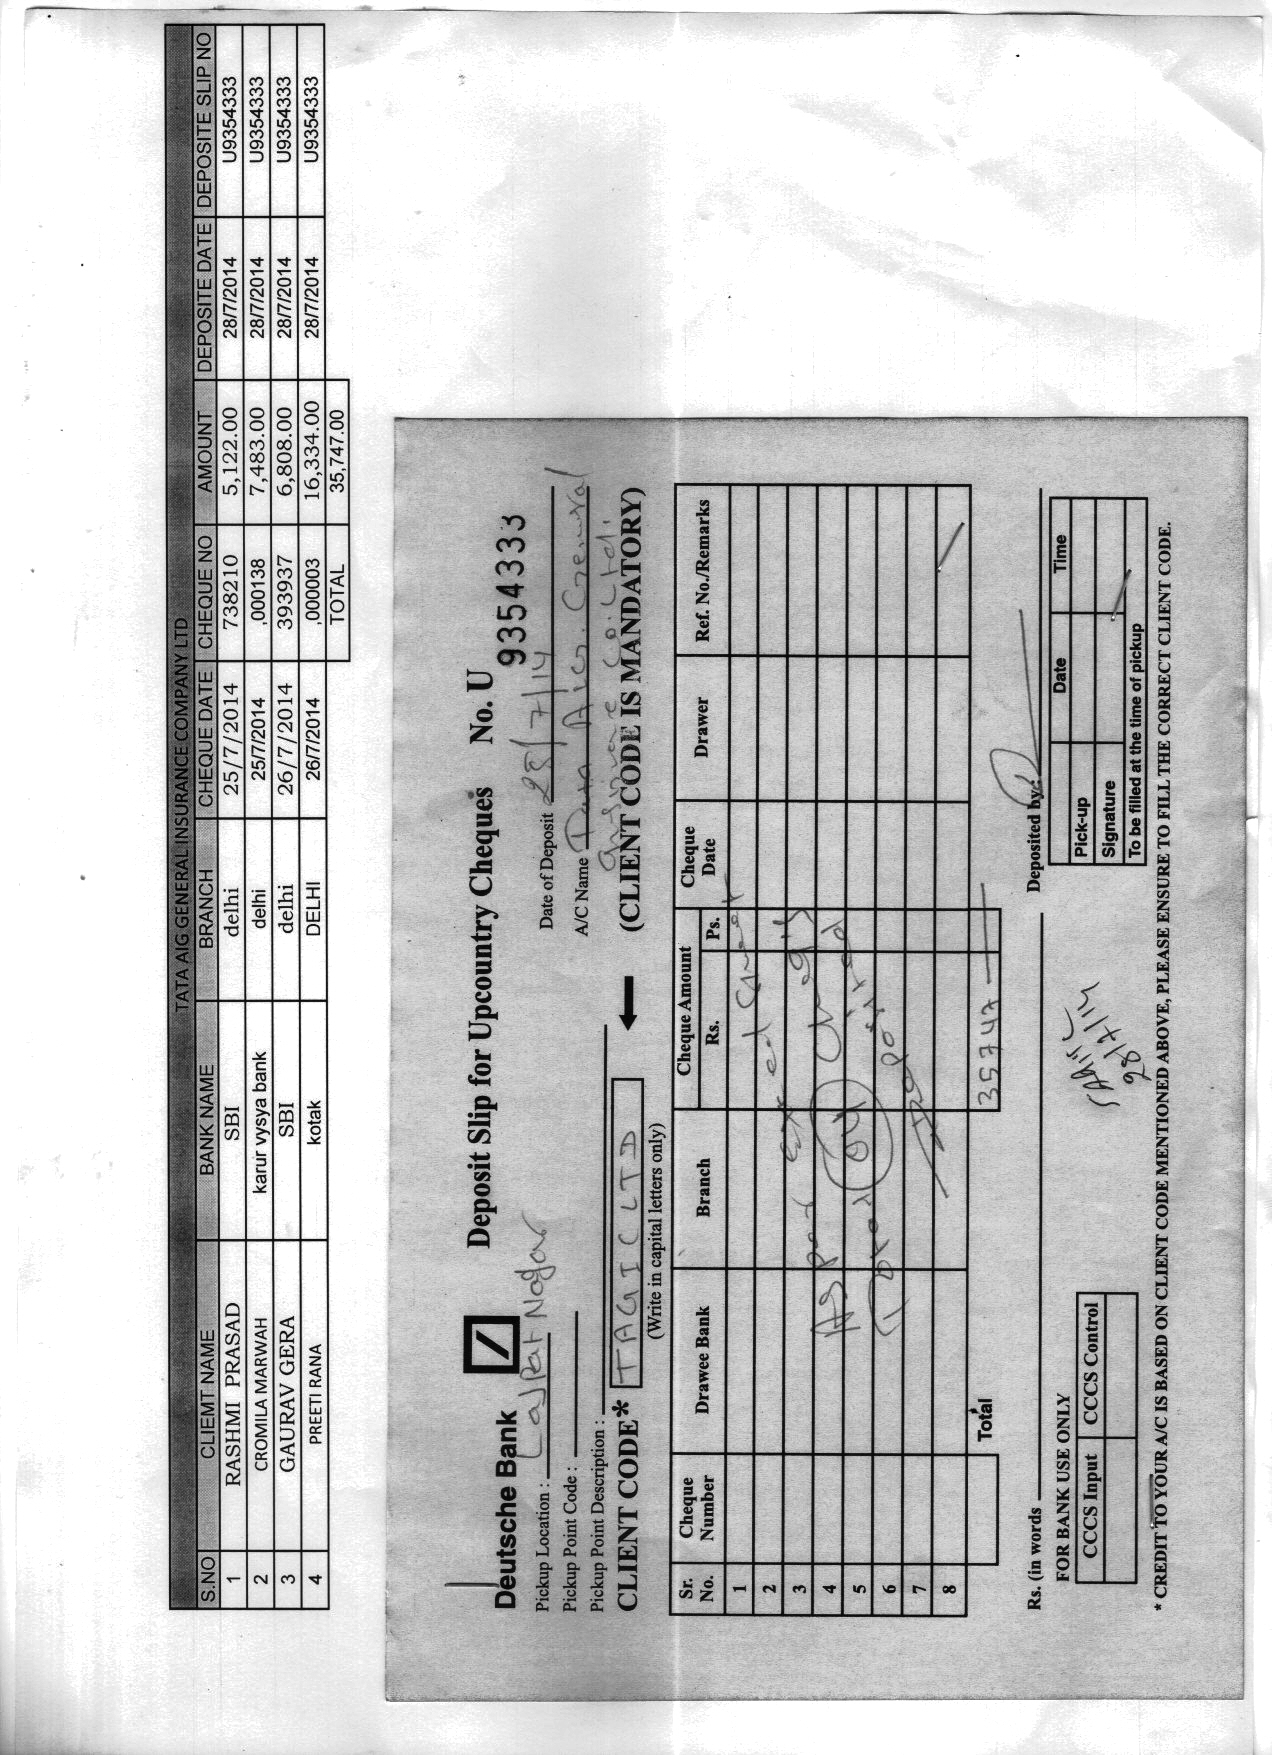 TATA AIG GENERAL INSURANCE COMPANY LTD
S.NO CLIEMT NAME BANK NAME BRANCH CHEQUE DATE CHEQUE NO AMOUNT DEPOSITE DATE DEPOSITE SLIP NO
1 RASHMI PRASAD SBI delhi 25/7/2014 738210 5,122.00 28/7/2014 U9354333
2 CROMILA MARWAH karur vysya bank delhi 25/7/2014 ,000138 7,483.00 28/7/2014 U9354333
3 GAURAV GERA SBI delhi 26/7/2014 393937 6,808.00 28/7/2014 U9354333
4 PREETI RANA kotak DELHI 26/7/2014 ,000003 16,334.00 28/7/2014 U9354333
TOTAL 35,747.00
Deutsche Bank Deposit Slip for Upcountry Cheques No. U 9354333
Pickup Location : Lajpat Nagar Date of Deposit 28/7/14
Pickup Point Code : A/C Name Tata Aig. General
Pickup Point Description : Insurance Co. Ltd.
CLIENT CODE* TAGIC LTD (CLIENT CODE IS MANDATORY)
(Write in capital letters only)
Sr. No. Cheque Number Drawee Bank Branch Cheque Amount Rs. Ps. Cheque Date Drawer Ref. No./Remarks
1
2
3
4
5
6
7
8
As per
Total 04
Total 35747
Rs. (in words Deposited by :
FOR BANK USE ONLY
CCCS Input CCCS Control
28/7/14
Date Time
Pick-up
Signature
To be filled at the time of pickup
* CREDIT TO YOUR A/C IS BASED ON CLIENT CODE MENTIONED ABOVE, PLEASE ENSURE TO FILL THE CORRECT CLIENT CODE.